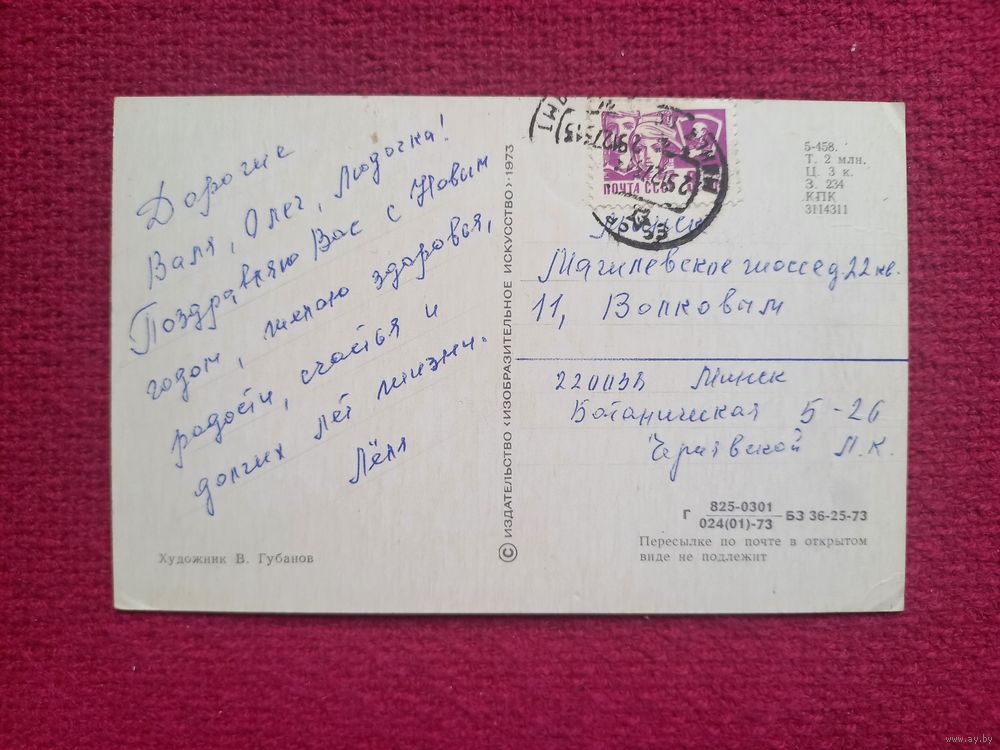 Дорогие
Валя, Олег, Людочка!
Поздравляю Вас с Новым
годом, желаю здоровья,
радости, счастья и
долгих лет жизни.
Лёля
Художник В. Губанов
© ИЗДАТЕЛЬСТВО «ИЗОБРАЗИТЕЛЬНОЕ ИСКУССТВО»·1973
ПОЧТА СССР
5-458.
Т. 2 млн.
Ц. 3 к.
З. 234
КПК
3114311
Минск
Магилевское шоссе д. 22 кв.
11, Волковым
220038 Минск
Ботаническая 5-26
Л.К.
Г 825-0301
024(01)-73 БЗ 36-25-73
Пересылке по почте в открытом
виде не подлежит
www.ay.by